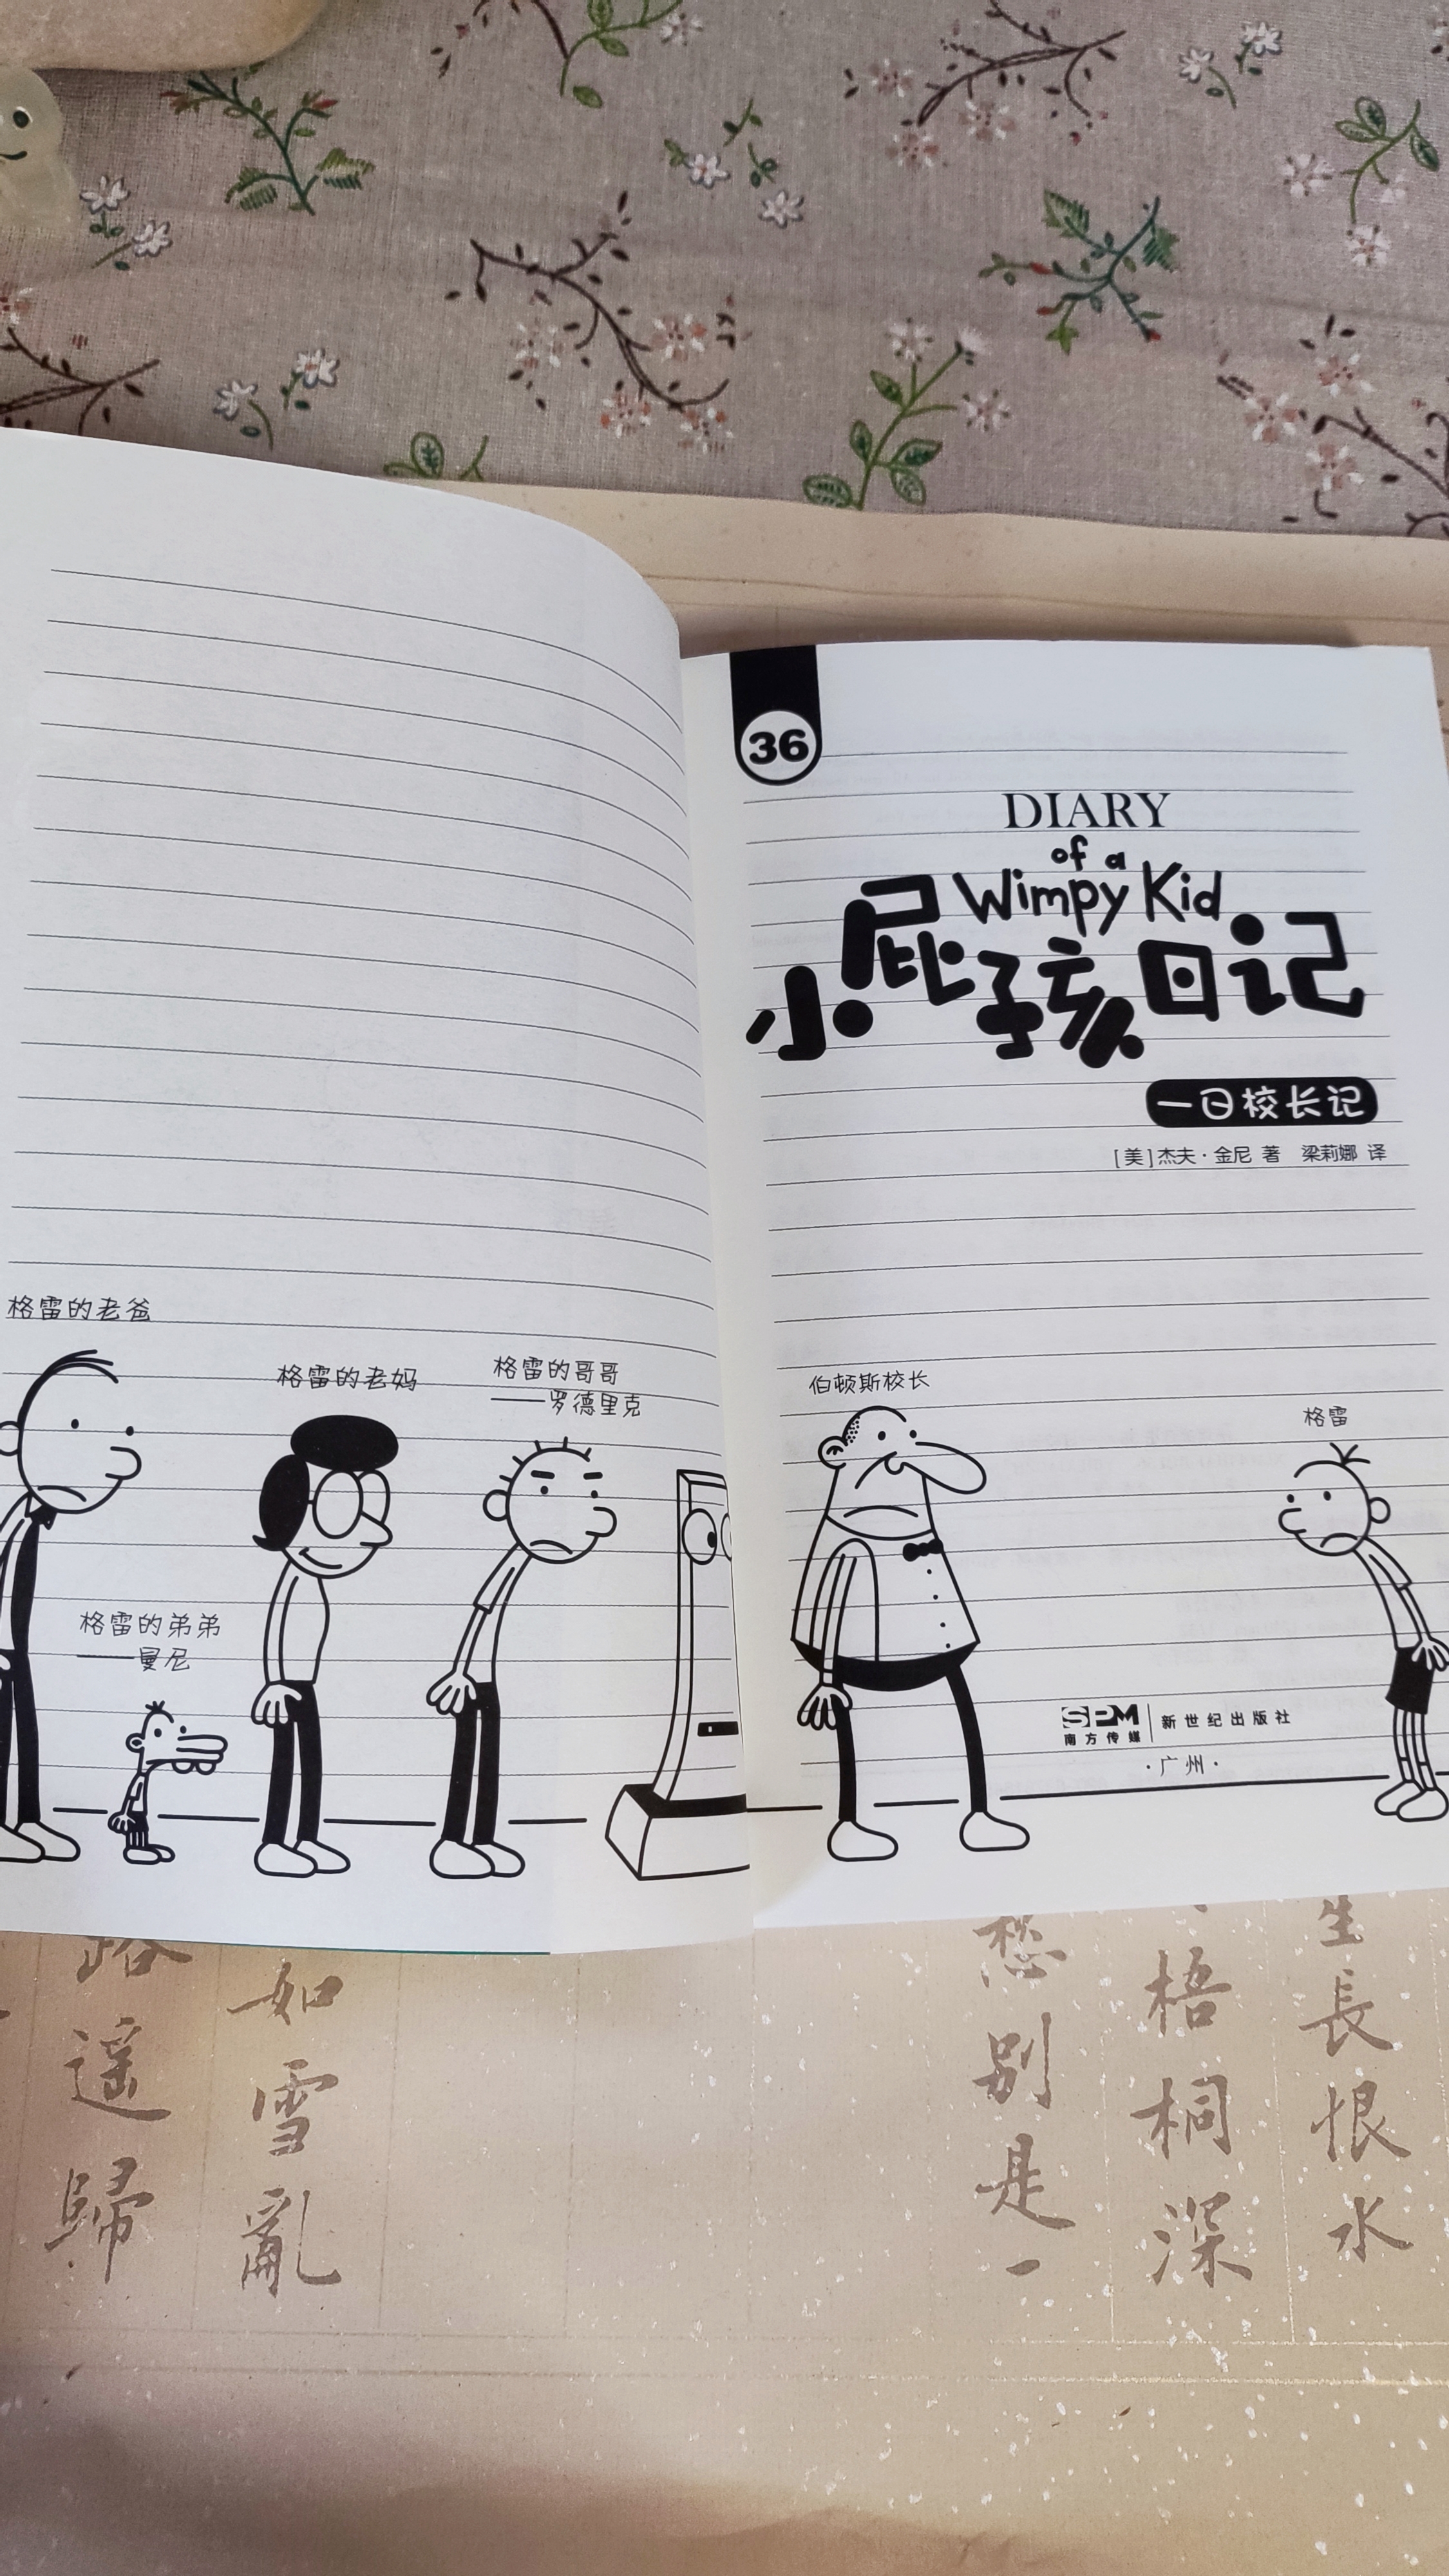 格雷的老爸
格雷的老妈
格雷的哥哥
——罗德里克
格雷的弟弟
——曼尼
36
DIARY
of a
Wimpy Kid
小屁孩日记
一日校长记
[美]杰夫·金尼 著 梁莉娜 译
伯顿斯校长
格雷
SPM
南方传媒
新世纪出版社
·广州·
生長恨水
梧桐深
愁別是一
如雪亂
路遥歸